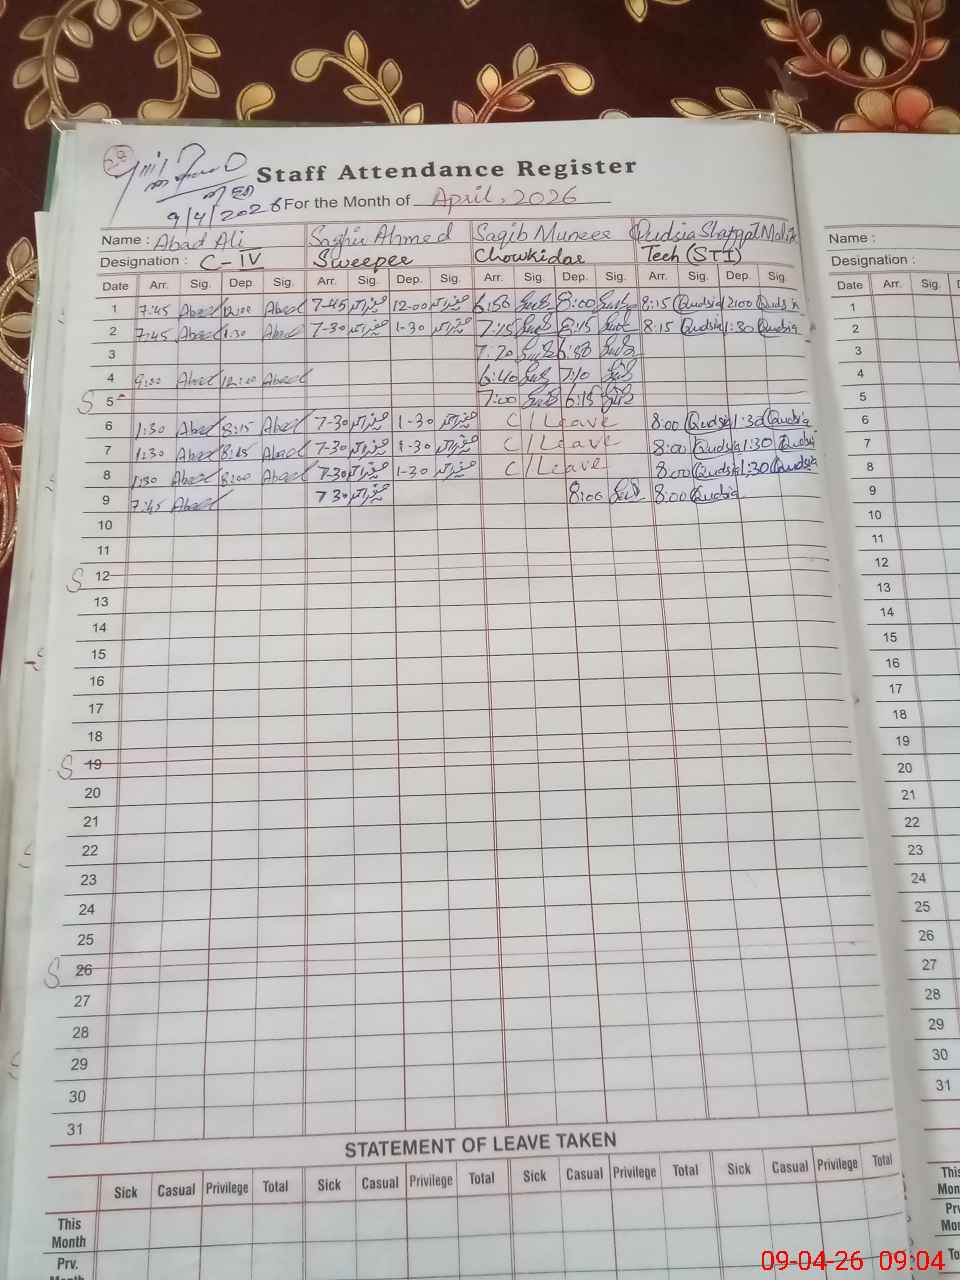 Staff Attendance Register
9/4/2026 For the Month of April, 2026
Name : Abad Ali Saghir Ahmed Saqib Muneer Qudsia Malik Name :
Designation : C-IV Sweeper Chowkidar Tech (STI) Designation :
Date Arr. Sig. Dep. Sig. Arr. Sig. Dep. Sig. Arr. Sig. Dep. Sig. Arr. Sig. Dep. Sig. Date Arr. Sig.
1 7:45 Abad 12:00 Abad 7-45 12-00 6:50 8:00 8:15 Qudsia 12:00 Qudsia 1
2 7:45 Abad 1:30 Abad 7-30 1-30 7:15 8:15 8:15 Qudsia 1:30 Qudsia 2
3 7:20 6:30 3
4 9:00 Abad 12:00 Abad 6:40 7:10 4
S 5 7:00 6:15 5
6 1:30 Abad 8:15 Abad 7-30 1-30 C/Leave 8:00 Qudsia 1:30 Qudsia 6
7 1:30 Abad 8:15 Abad 7-30 1-30 C/Leave 8:00 Qudsia 1:30 Qudsia 7
8 1:30 Abad 8:00 Abad 7-30 1-30 C/Leave 8:00 Qudsia 1:30 Qudsia 8
9 7:45 Abad 7 30 8:00 8:00 Qudsia 9
10 10
11 11
S 12 12
13 13
14 14
15 15
16 16
17 17
18 18
S 19 19
20 20
21 21
22 22
23 23
24 24
25 25
S 26 26
27 27
28 28
29 29
30 30
31 31
STATEMENT OF LEAVE TAKEN
Sick Casual Privilege Total Sick Casual Privilege Total Sick Casual Privilege Total Sick Casual Privilege Total
This Month
Prv.
09-04-26 09:04